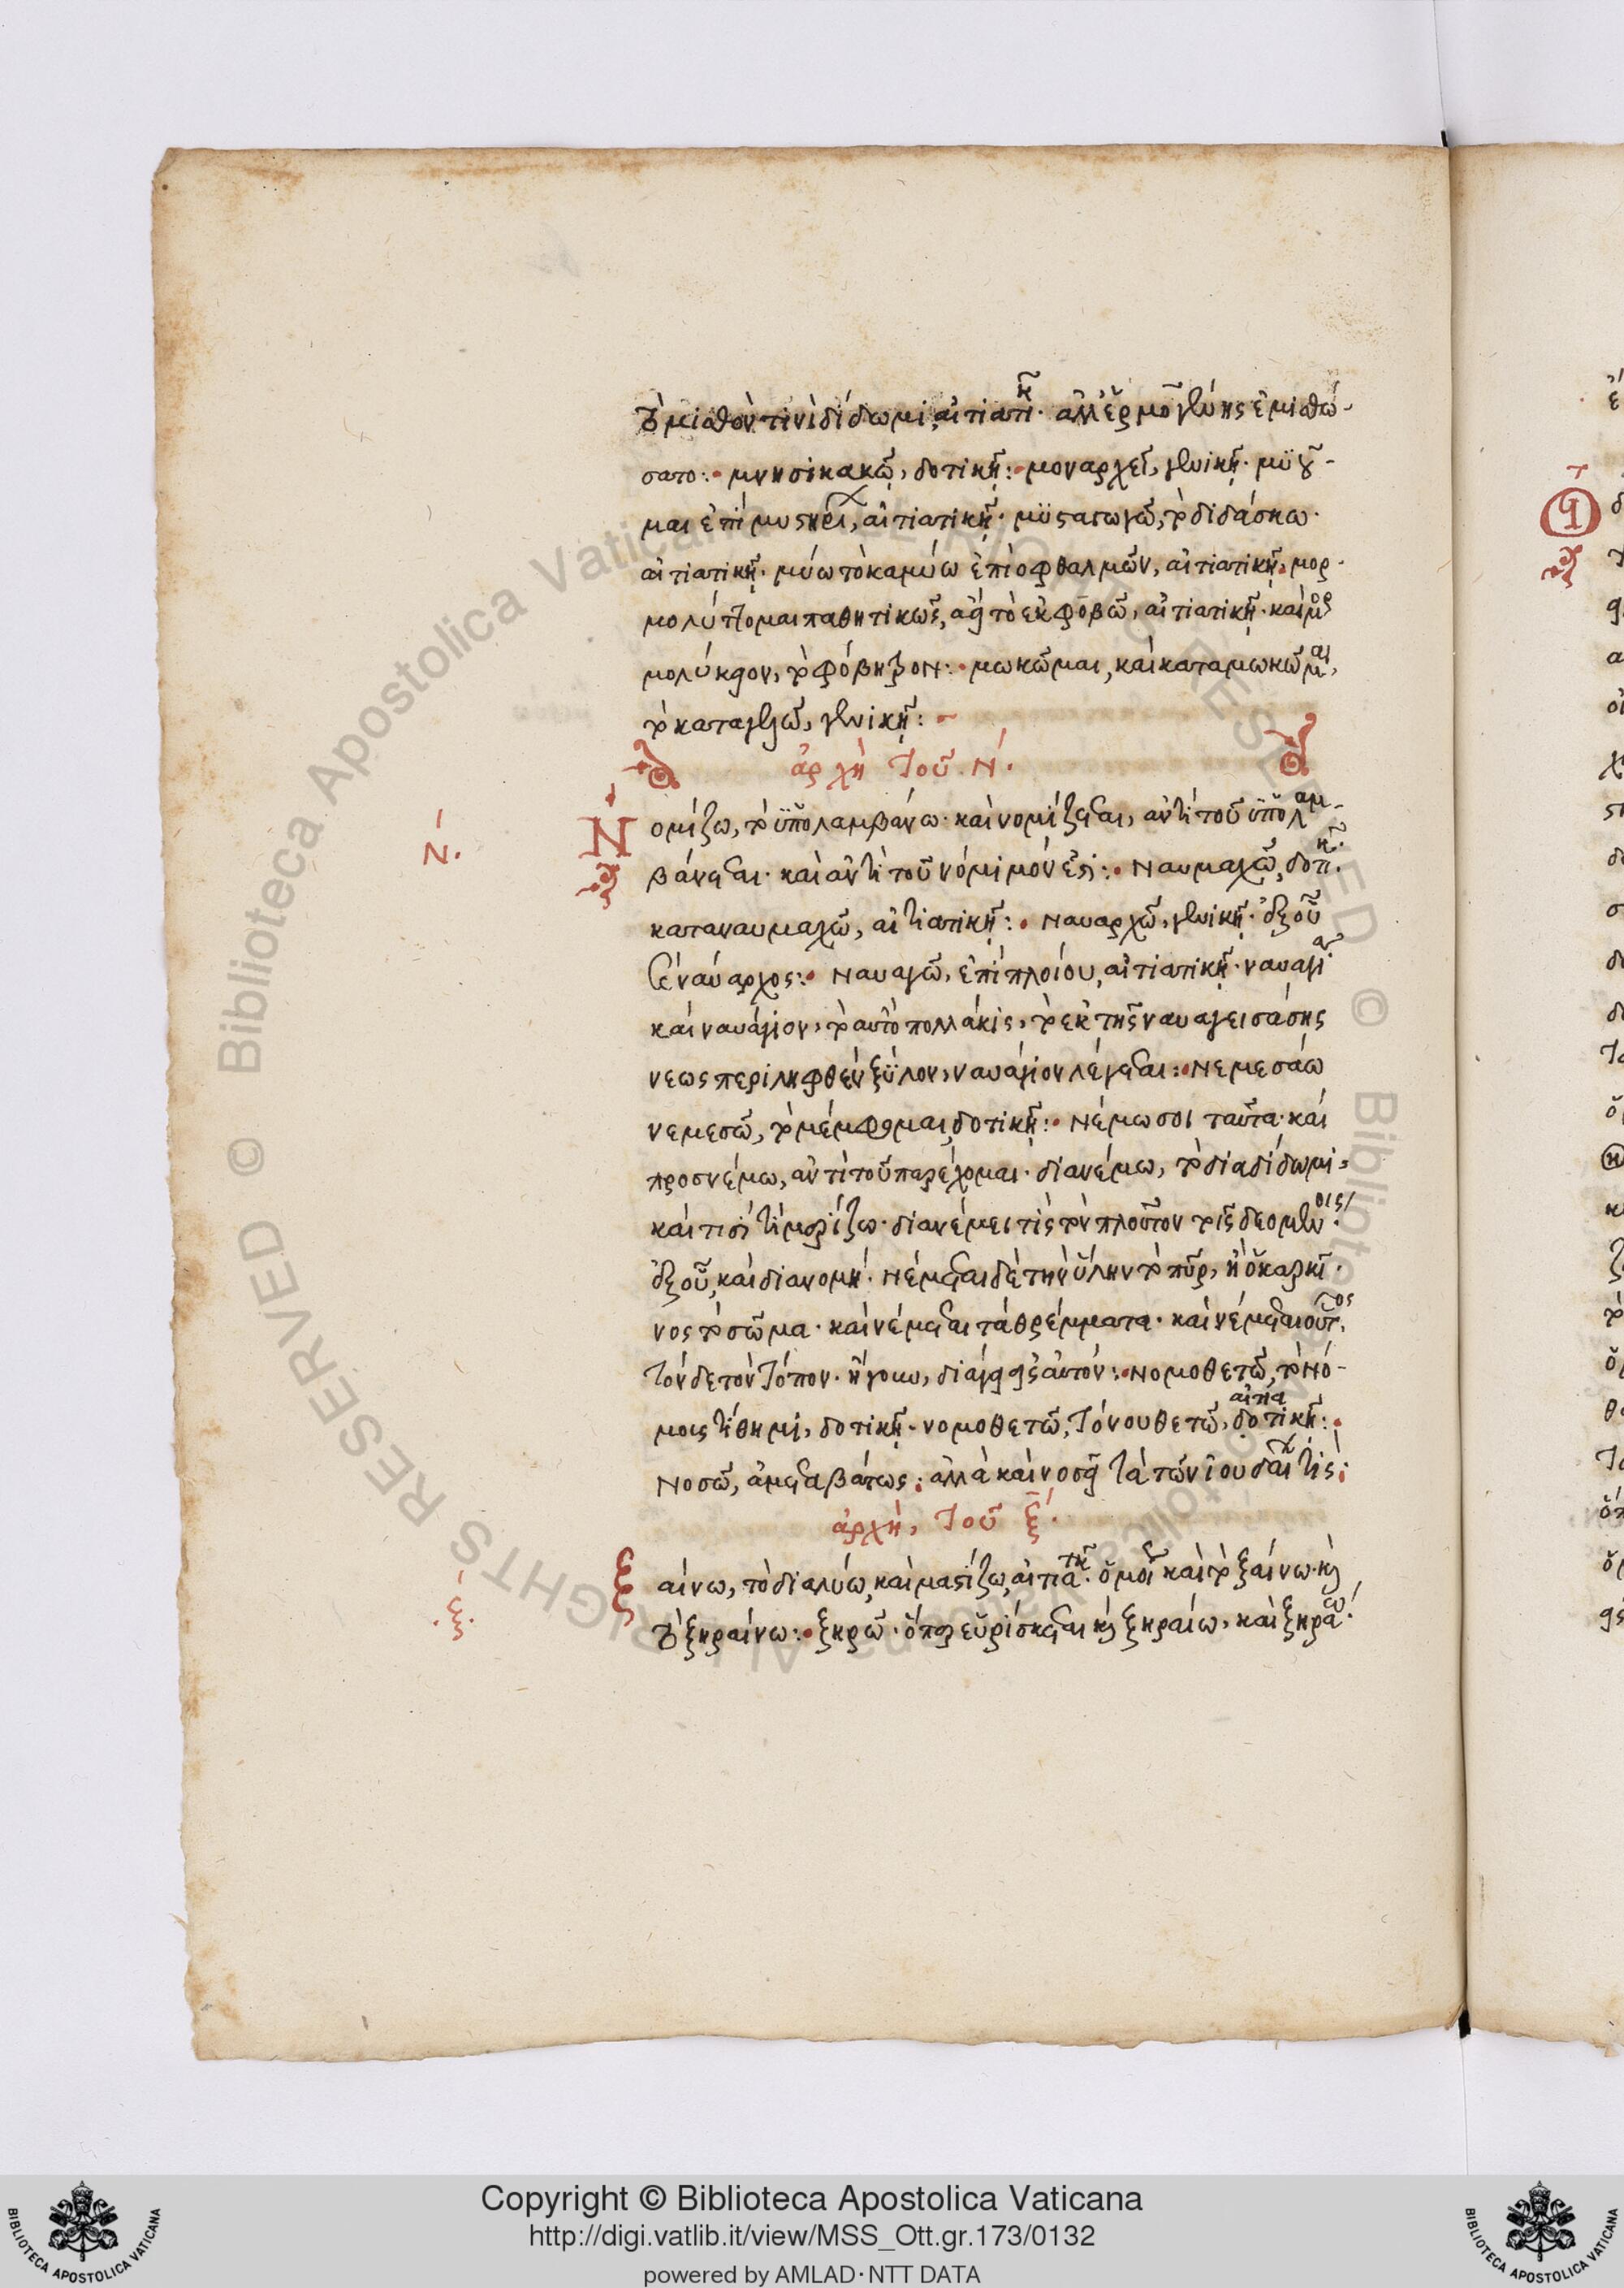 τὸ μισθόν τινι δίδωμι, αἰτιατικῆ· ἀλλ' ἑρμογένης ἐμισθώ-
σατο:· μνησικακῶ, δοτικῆ:· μοναρχεῖ, γενικῆ· μυοῦ-
μαι ἐπὶ μυστηρί, αἰτιατικῆ· μυσταγωγῶ, τὸ διδάσκω·
αἰτιατικῆ· μύω τὸ καμύω ἐπὶ ὀφθαλμῶν, αἰτιατικῆ· μορ-
μολύττομαι παθητικῶς, τὸ ἐκφοβῶ, αἰτιατικῆ· καὶ μορ
μολύκειον, τὸ φόβητρον:· μωκῶμαι, καὶ καταμωκῶμαι,
τὸ καταγελῶ, γενικῆ:·
ἀρχὴ τοῦ Ν·
Νομίζω, τὸ ὑπολαμβάνω· καὶ νομίζεται, ἀντὶ τοῦ ὑπολαμ-
βάνεται· καὶ ἀντὶ τοῦ νόμιμόν ἐστι:· Ναυμαχῶ, δοτικῆ·
καταναυμαχῶ, αἰτιατικῆ:· Ναυαρχῶ, γενικῆ· ἐξ οὗ
καὶ ναύαρχος:· Ναυαγῶ, ἐπὶ πλοίου, αἰτιατικῆ· ναυαγία
καὶ ναυάγιον, τὸ αὐτὸ πολλάκις, τὸ ἐκ τῆς ναυαγεισάσης
νεὼς περιληφθὲν ξύλον, ναυάγιον λέγεται:· Νεμεσάω
νεμεσῶ, τὸ μέμφομαι, δοτικῆ:· Νέμω σοι ταῦτα· καὶ
προσνέμω, ἀντὶ τοῦ παρέχομαι· διανέμω, τὸ διαδίδωμι,
καὶ τισί τι μερίζω· διανέμει τις τὸν πλοῦτον τοῖς δεομένοις·
ἐξ οὗ, καὶ διανομή· Νέμεται δὲ τὴν ὕλην τὸ πῦρ, ἢ ὁ καρκῖ-
νος τὸ σῶμα· καὶ νέμεται τὰ θρέμματα· καὶ νέμεται οὗτος
τόνδε τὸν τόπον· ἤγουν, διάγει εἰς αὐτόν:· Νομοθετῶ, τὸ νό-
μοις τίθημι, δοτικῆ· νομοθετῶ, τὸ νουθετῶ, δοτικῆ:·
αἰτια
Νοσῶ, ἀμεταβάτως: ἀλλὰ καὶ νοσεῖ τὰ τῶν ἰουδαίων τίς:
ἀρχὴ, τοῦ ξ·
Ν·
ξαίνω, τὸ διαλύω, καὶ μαστίζω, αἰτιατικῆ· ὅμοιον καὶ τὸ ξαίνω· καὶ
τὸ ξηραίνω:· ξηρῶ· ὅπερ εὑρίσκεται καὶ ξηραίω, καὶ ξηράω·
·ξ·
Copyright © Biblioteca Apostolica Vaticana
http://digi.vatlib.it/view/MSS_Ott.gr.173/0132
powered by AMLAD·NTT DATA
BIBLIOTECA APOSTOLICA VATICANA
BIBLIOTECA APOSTOLICA VATICANA